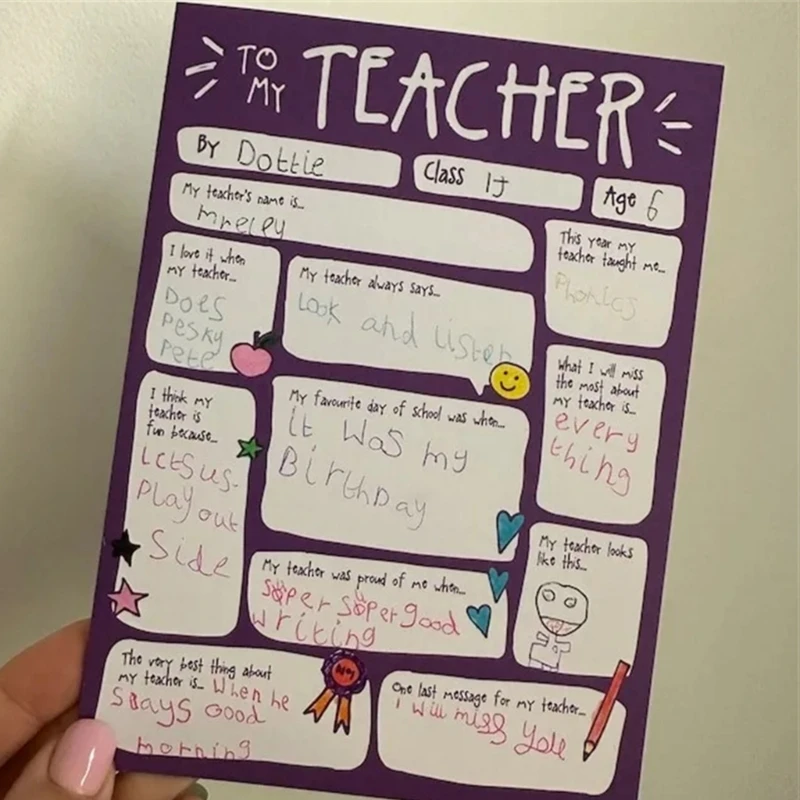 TO MY TEACHER
BY Dottie
Class 1J
Age 6
My teacher's name is...
mreley
This year my
teacher taught me...
Phonics
I love it when
my teacher...
Does
pesky
Pete
My teacher always says...
Look and listen
What I will miss
the most about
my teacher is...
every
thing
I think my
teacher is
fun because...
Letsus
Play out
Side
My favourite day of school was when...
it was my
BirthDay
My teacher looks
like this...
My teacher was proud of me when...
super super good
writing
The very best thing about
my teacher is... When he
says Good
morning
One last message for my teacher...
I will miss you